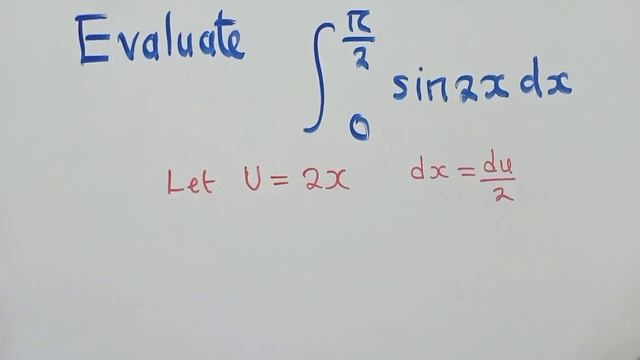 Evaluate ∫₀^{π/2} sin2x dx
Let U = 2x dx = du/2